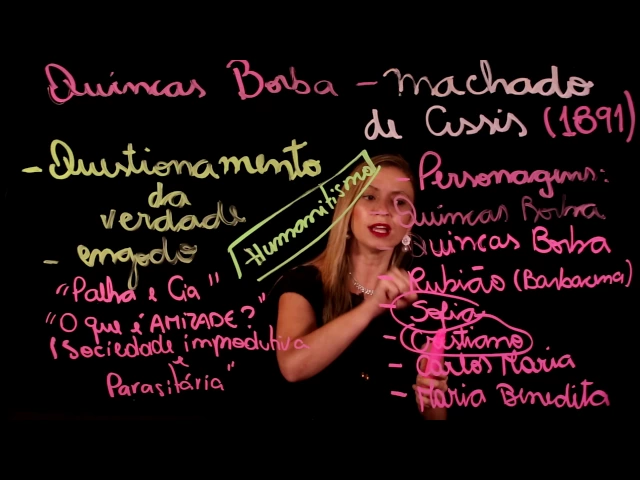 Quincas Borba - Machado
de Assis (1891)
- Questionamento
da
verdade
- engodo
"Palha e Cia"
"O que é AMIZADE?"
(Sociedade improdutiva
e
Parasitária"
Humanitismo
- Personagens:
Quincas Borba
Quincas Borba
- Rubião (Barbacena)
- Sofia
- Cristiano
- Carlos Maria
- Maria Benedita